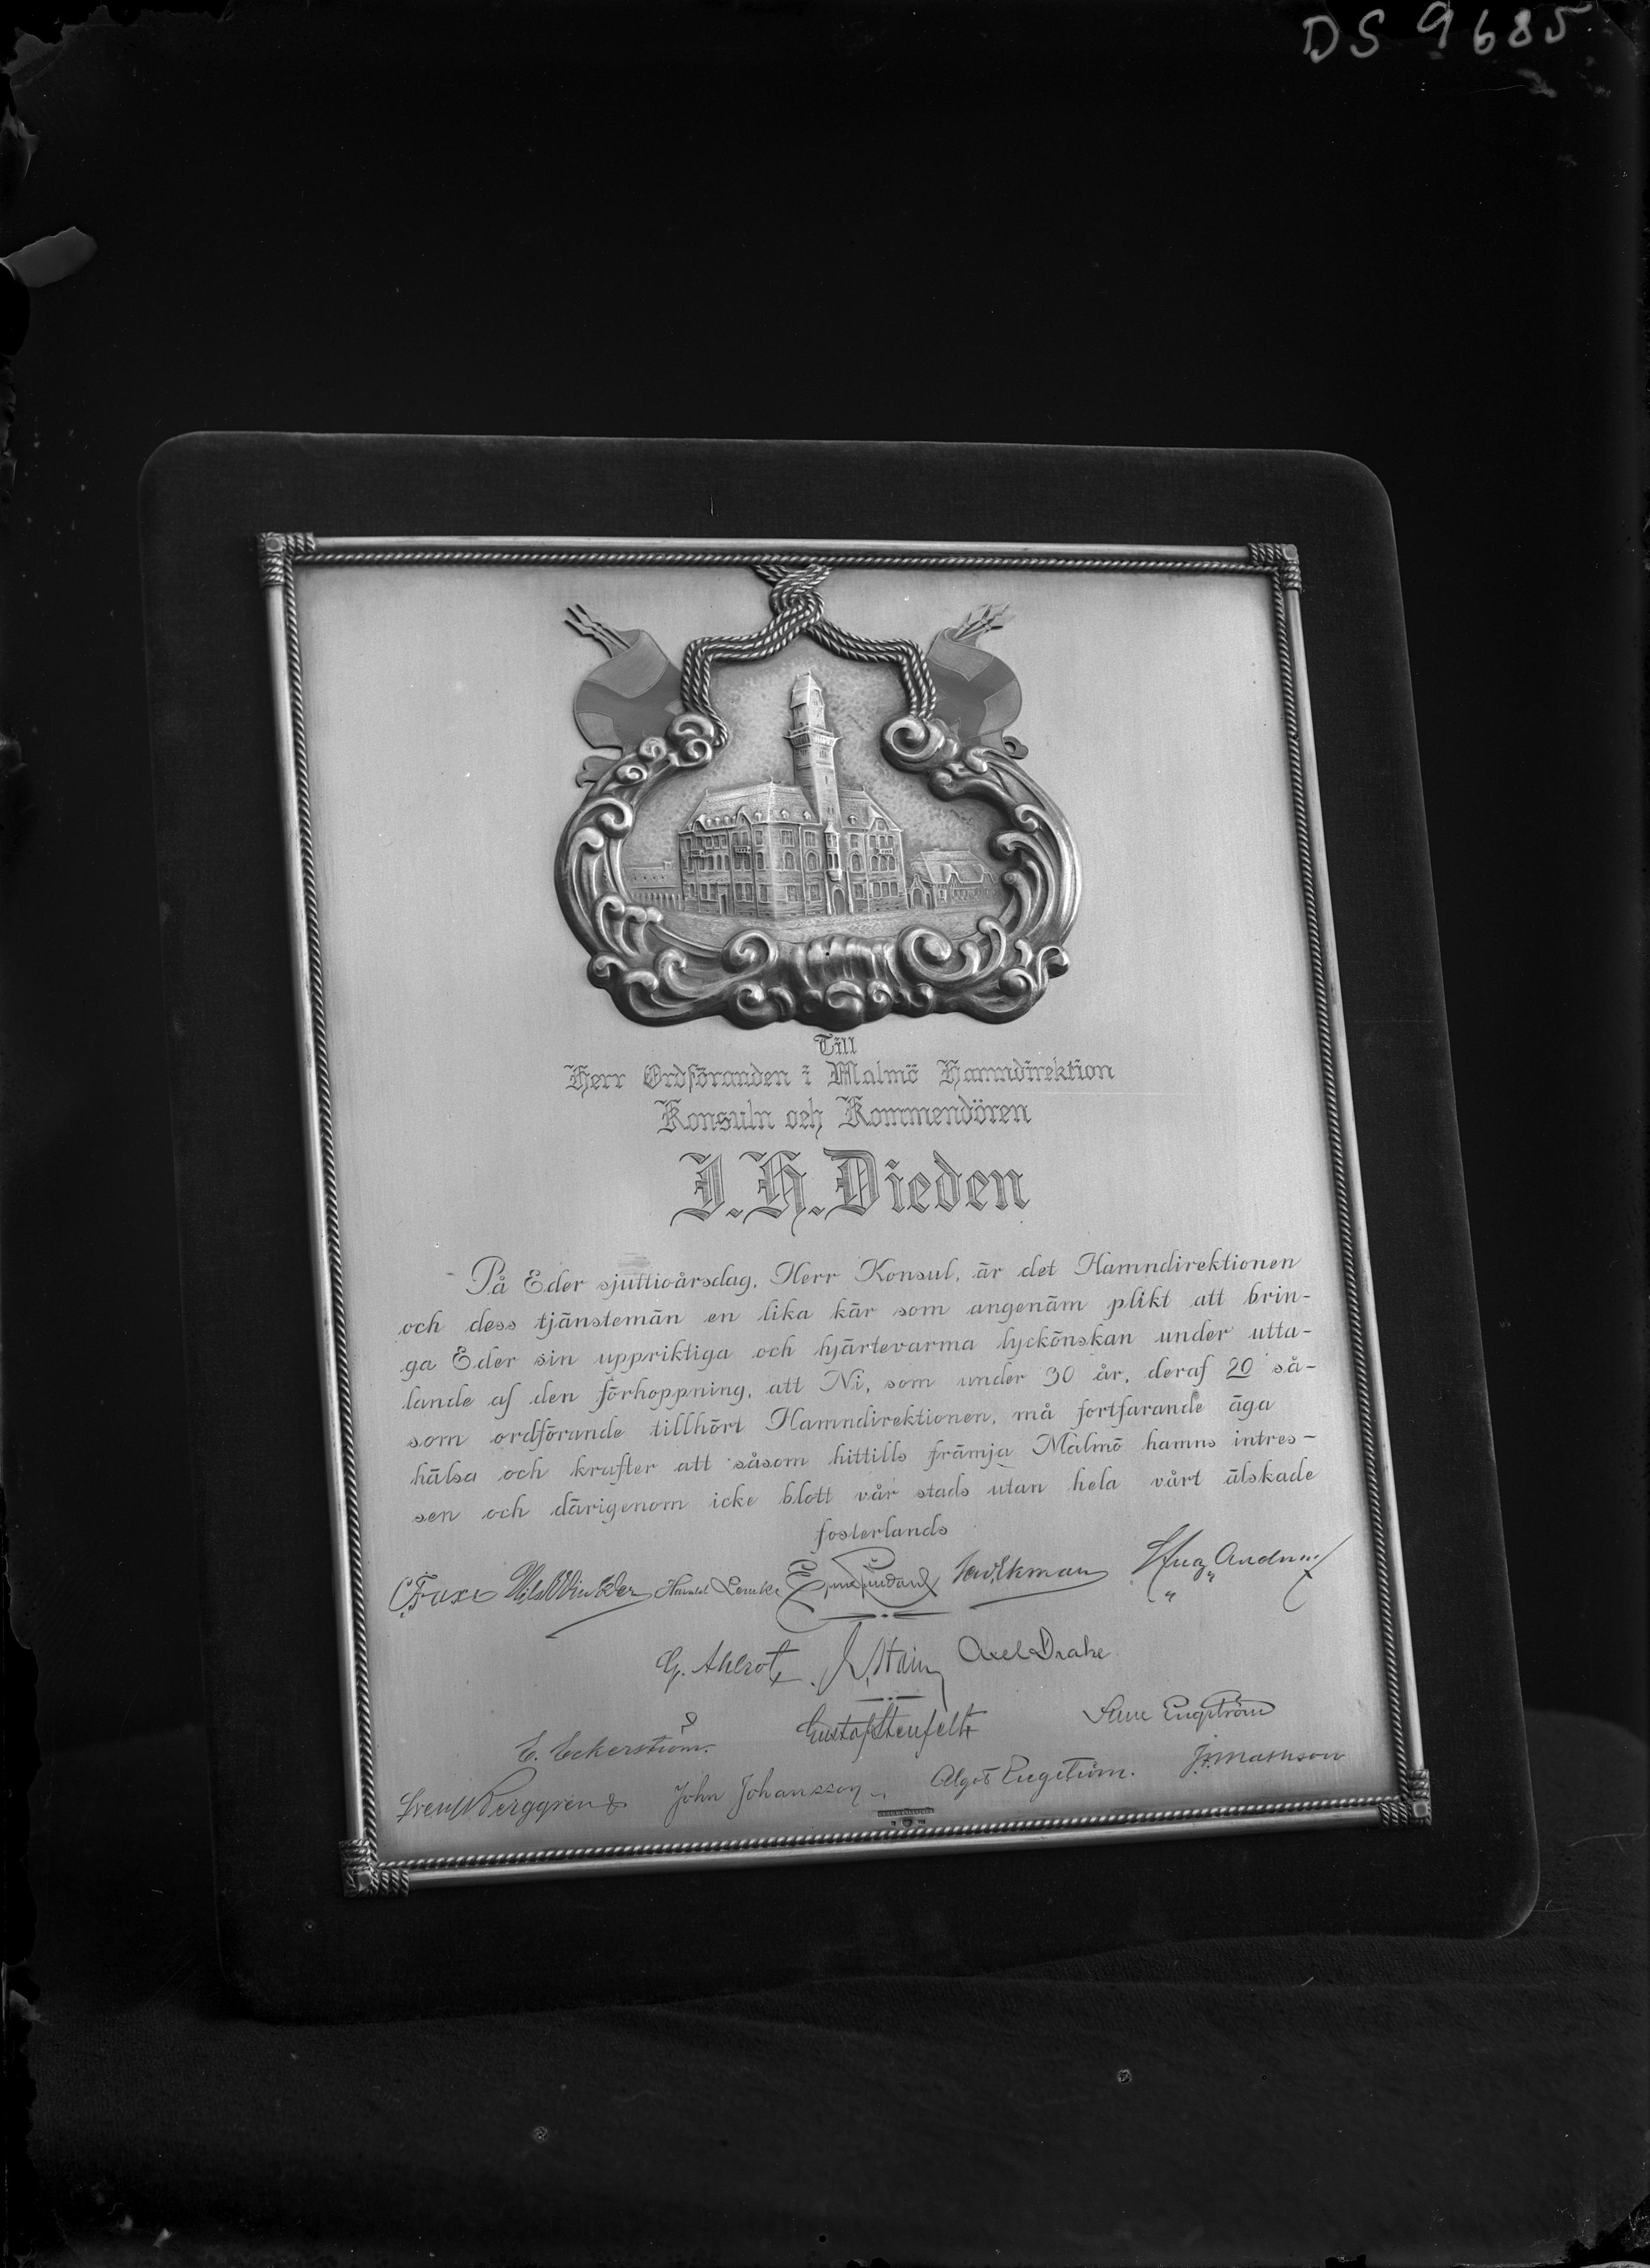 DS 9685
Till
Herr Ordföranden i Malmö Hamndirektion
Konsuln och Kommendören
J. H. Dieden
På Eder sjuttioårsdag, Herr Konsul, är det Hamndirektionen
och dess tjänstemän en lika kär som angenäm plikt att brin-
ga Eder sin uppriktiga och hjärtevarma lyckönskan under utta-
lande af den förhoppning, att Ni, som under 30 år, deraf 20 så-
som ordförande tillhört Hamndirektionen, må fortfarande äga
hälsa och krafter att såsom hittills främja Malmö hamns intres-
sen och därigenom icke blott vår stads utan hela vårt älskade
fosterlands
C. Faxe Nils Winkler Harald Lembke Ekman
G. Ahlrot Axel Drake
E. Eckerström Gustaf Stenfelt Sune Engström
Sven W. Berggren John Johansson Algot Engström. Mathsson